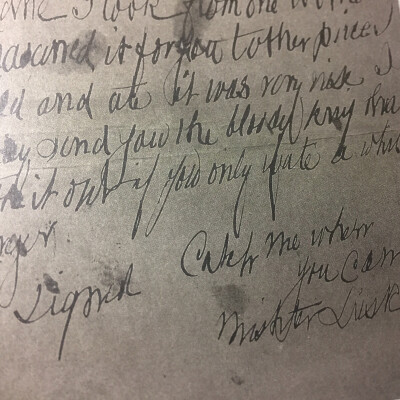 I took from one
rasarved it for you tother piece I
ed and ate it was very nise I
ay send you the bloody knif tha
it out if you only wate a whil
nger.
signed
Catch me when
you can
Mishter Lusk